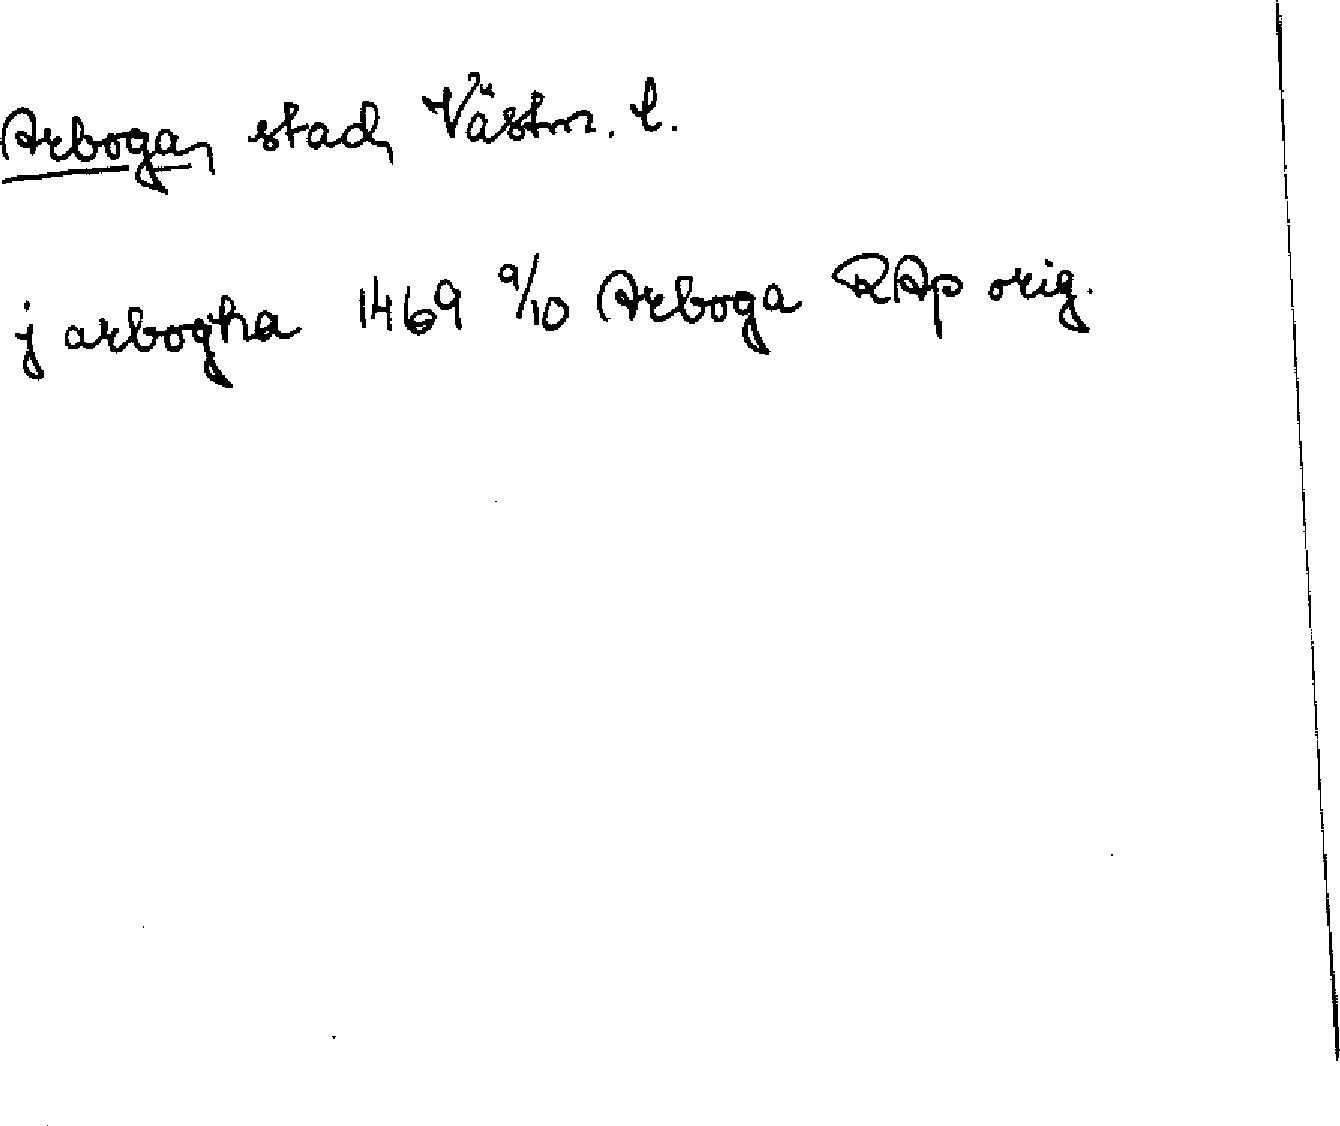 Arboga, stad, Västm. l.
j arbogha 1469 9/10 Arboga RAp orig.